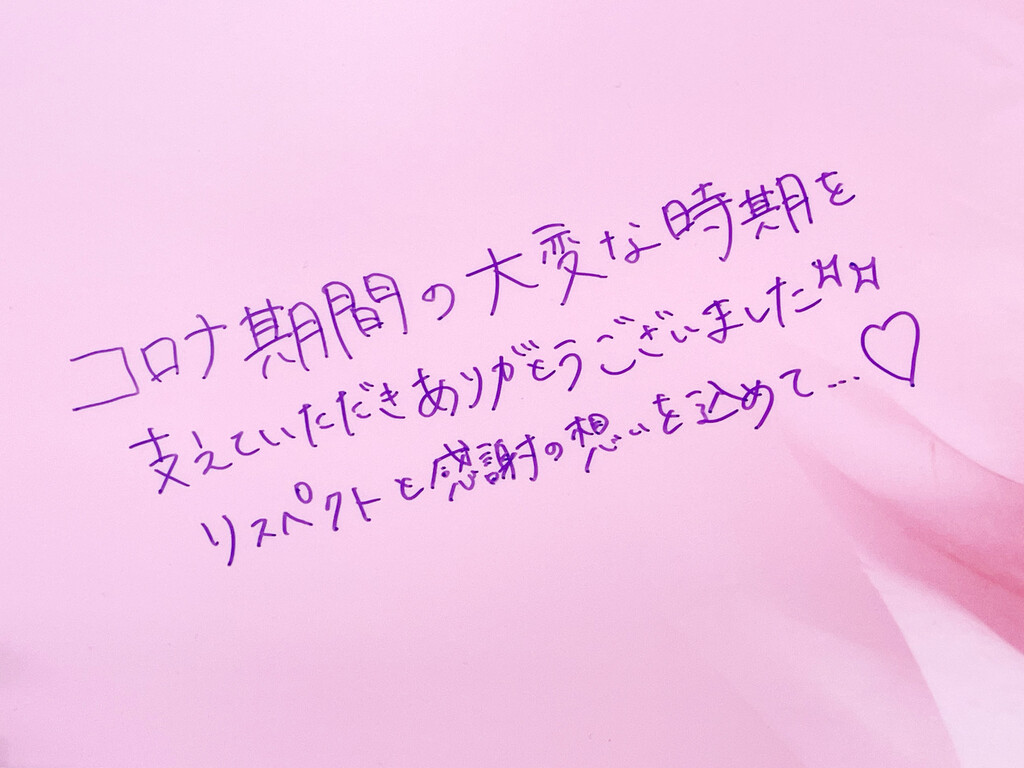 コロナ期間の大変な時期を
支えていただきありがとうございました✨
リスペクトと感謝の想いを込めて…♡